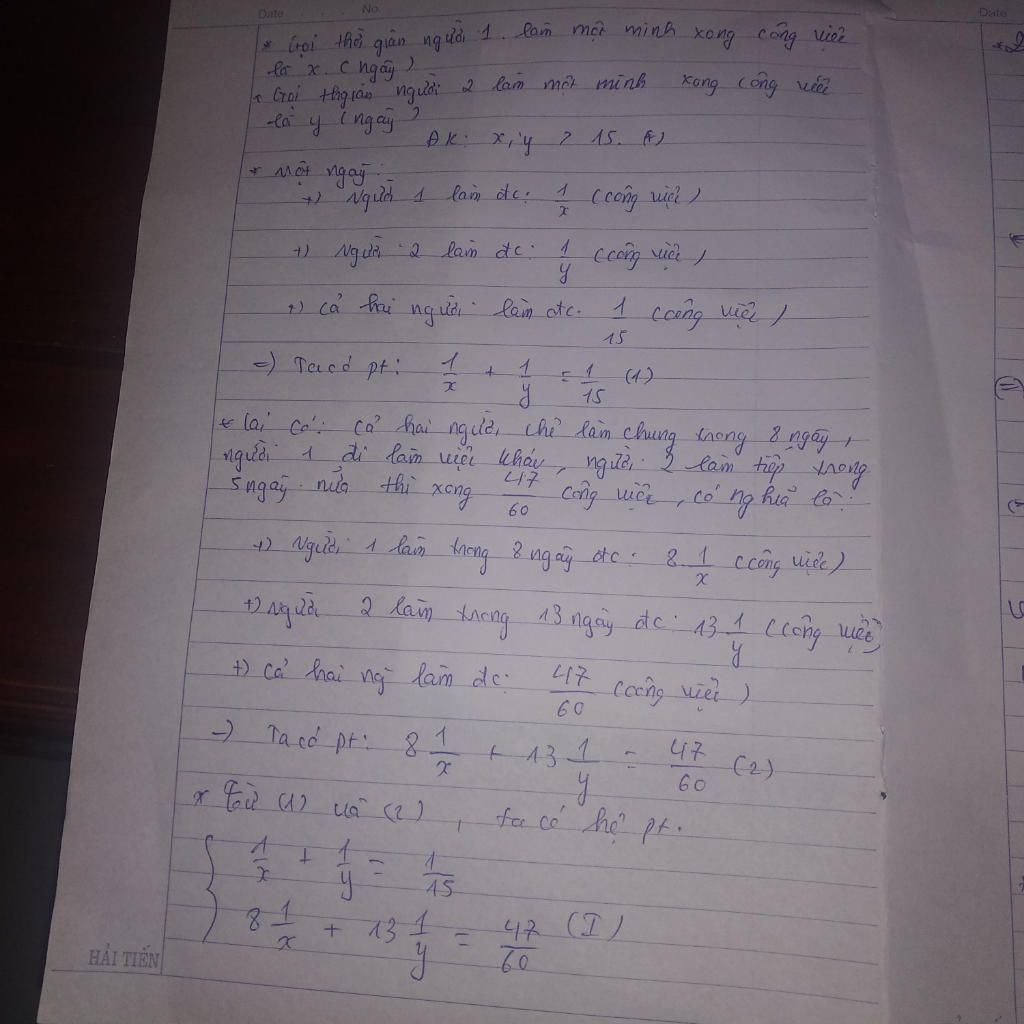 Date No.
Date
* Gọi thời gian người 1 làm một mình xong công việc
là x (ngày)
* Gọi thgian người 2 làm một mình xong công việc
là y (ngày)
ĐK: x, y > 15. (*)
* Một ngày:
+) Người 1 làm đc: 1/x (công việc)
+) Người 2 làm đc: 1/y (công việc)
+) Cả hai người làm đc: 1/15 (công việc)
=) Ta có pt: 1/x + 1/y = 1/15 (1)
* Lại có: cả hai người chỉ làm chung trong 8 ngày,
người 1 đi làm việc khác, người 2 làm tiếp trong
5 ngày nữa thì xong 47/60 công việc, có nghĩa là:
+) Người 1 làm trong 8 ngày đc: 8 1/x (công việc)
+) Người 2 làm trong 13 ngày đc: 13 1/y (công việc)
+) Cả hai ng làm đc: 47/60 (công việc)
=) Ta có pt: 8 1/x + 13 1/y = 47/60 (2)
* Từ (1) và (2), ta có hệ pt.
{ 1/x + 1/y = 1/15
8 1/x + 13 1/y = 47/60 (I)
HẢI TIẾN